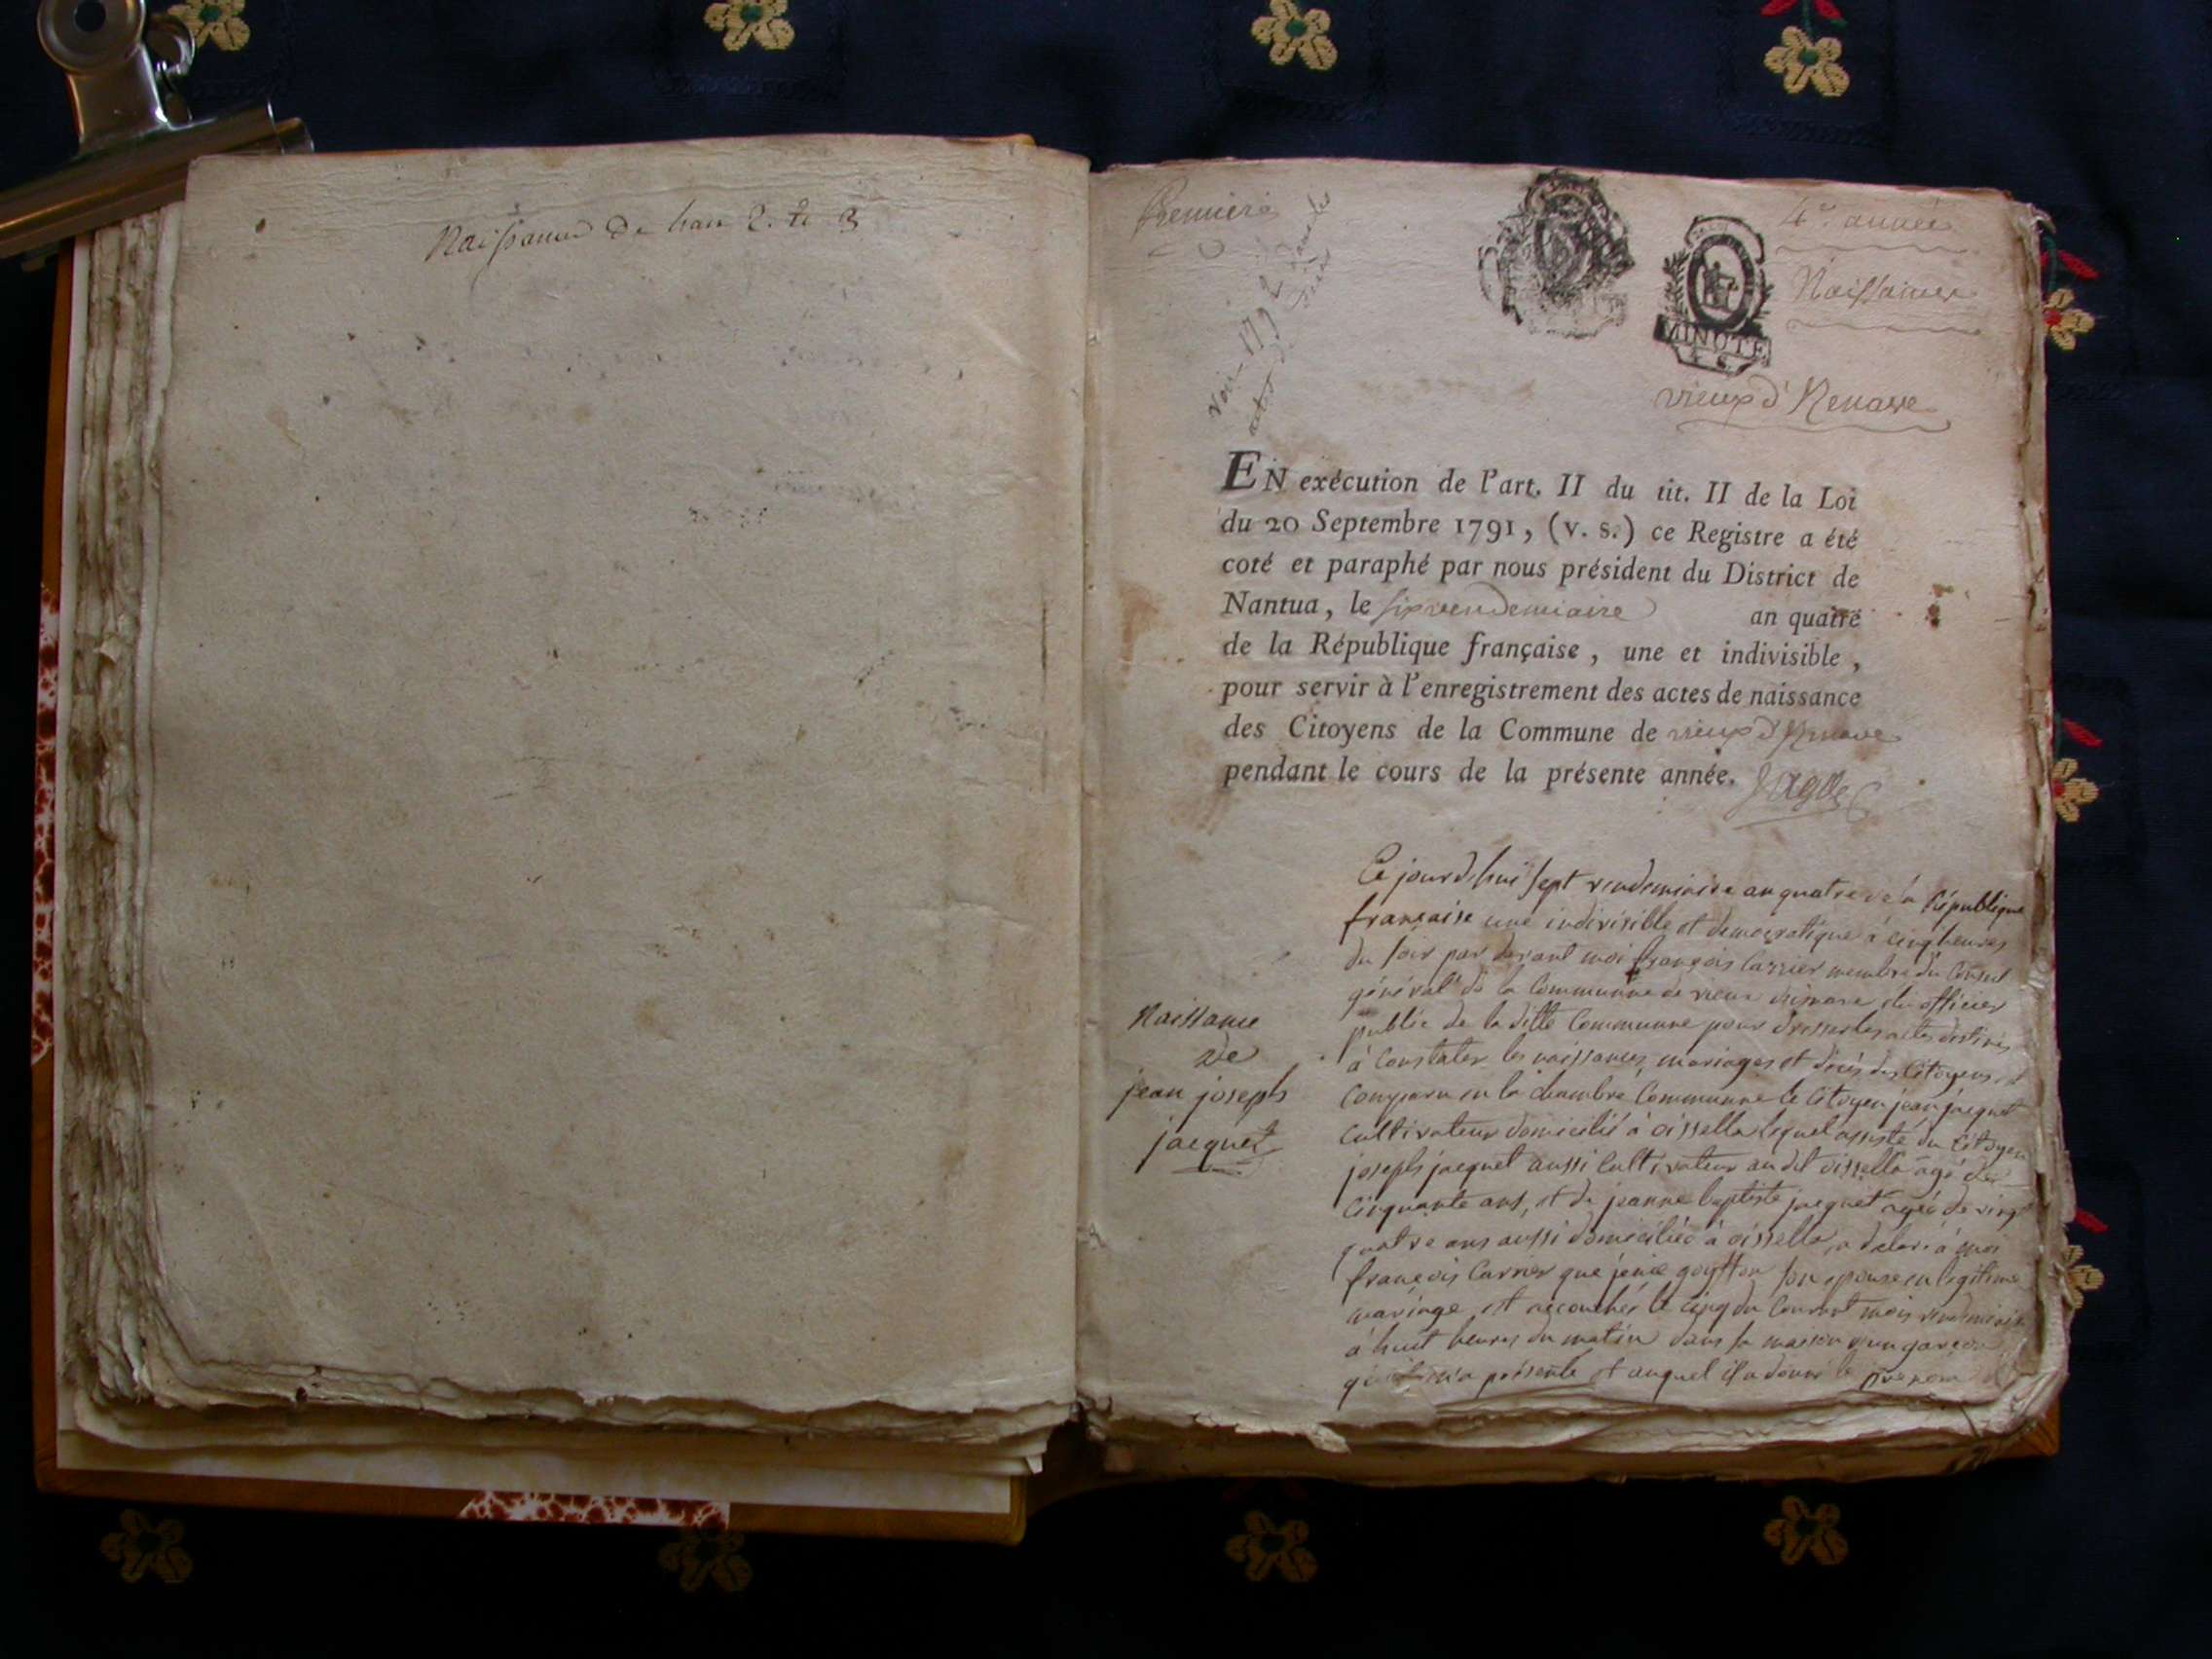 Naissance de l'an 2. et 3
Premiere
4e. année
Naissances
MINUTE
4 S.
voir 1792
actes
vieux d'Renave
EN exécution de l'art. II du tit. II de la Loi
du 20 Septembre 1791, (v. s.) ce Registre a été
coté et paraphé par nous président du District de
Nantua, le six vendemiaire an quatre
de la République française, une et indivisible,
pour servir à l'enregistrement des actes de naissance
des Citoyens de la Commune de vieux d'Renave
pendant le cours de la présente année.
Naissance
de
jean joseph
jacquet
Ce jourd'huî sept vendemiaire an quatre de la République
française une indivisible et democratique à cinq heures
du soir par devant moi françois Carrier membre du Conseil
général de la Communne de vieux disnave élu officier
public de la ditte Communne pour dresser les actes destinés
à Constater les naissances, mariages et décés des Citoyens, est
Comparu en la chambre Communne le Citoyen jean jacquet
Cultivateur domicilié à oissella lequel assisté du Citoyen
joseph jacquet aussi Cultivateur au dit oissella agé de
Cinquante ans, et de jeanne baptiste jacquet agée de vingt
quatre ans aussi domiciliée à oissella, a déclaré à moi
françois Carrier que goytton son epouse en legitime
mariage est accouchée le cinq du Courant mois vendemiaire
à huit heures du matin dans sa maison d'un garçon
qu'il m'a présenté et auquel il a donné le prenom de